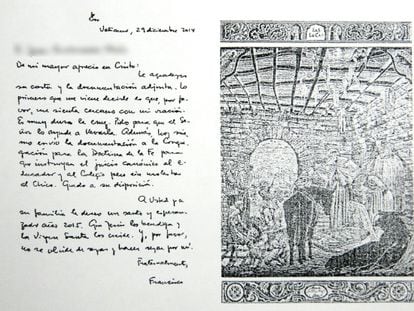 Vaticano, 29 diciembre 2014
De mi mayor aprecio en Cristo:
Le agradezco
su carta y la documentación adjunta. Lo
primero que me viene decirle es que, por fa-
vor, me sienta cercano con mi oración.
Es muy dura la cruz. Pido para que el Se-
ñor lo ayude a llevarla. Además, hoy mis-
mo envío la documentación a la Congre-
gación para la Doctrina de la Fe para
que instruyan el juicio canónico al e-
ducador y al Colegio pero sin molestar
al chico. Quedo a su disposición.
A Usted y a
su familia le deseo un santo y esperan-
zador año 2015. Que Jesús los bendiga y
la Virgen Santa los cuide. Y, por favor,
no se olvide de rezar y hacer rezar por mí.
Fraternalmente,
Francisco